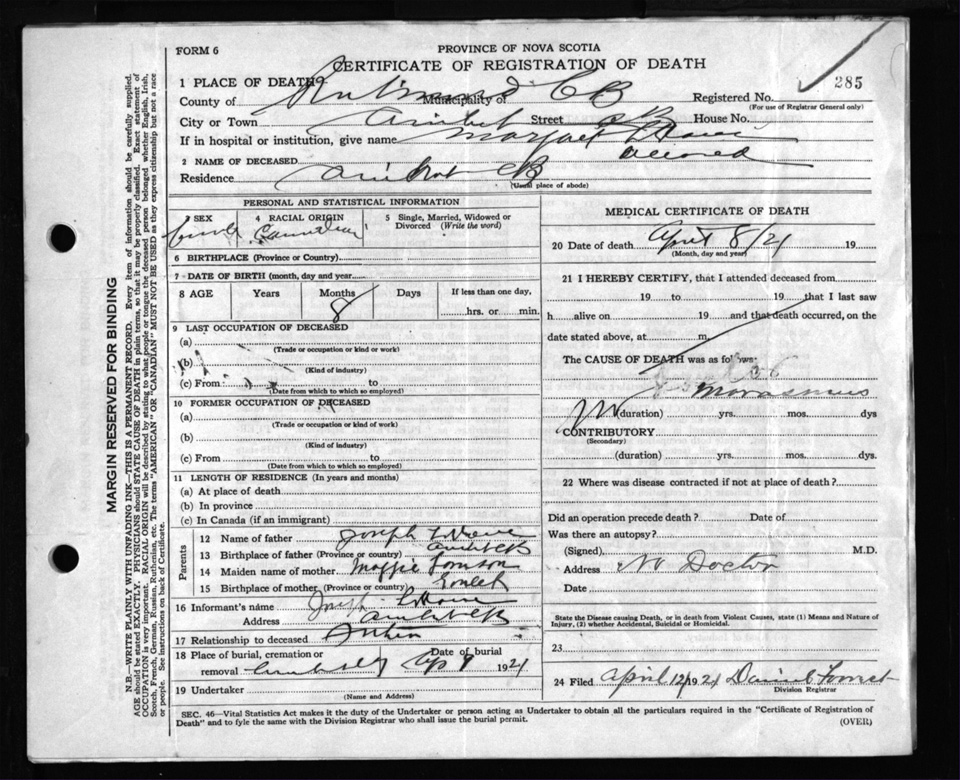 FORM 6
PROVINCE OF NOVA SCOTIA
CERTIFICATE OF REGISTRATION OF DEATH
285
1 PLACE OF DEATH
County of Municipality of CB Registered No.
(For use of Registrar General only)
City or Town Street House No.
If in hospital or institution, give name
2 NAME OF DECEASED
Residence CB
(Usual place of abode)
PERSONAL AND STATISTICAL INFORMATION
3 SEX 4 RACIAL ORIGIN Canadian 5 Single, Married, Widowed or Divorced (Write the word)
6 BIRTHPLACE (Province or Country)
7 DATE OF BIRTH (month, day and year)
8 AGE Years Months 8 Days If less than one day, hrs. or min.
9 LAST OCCUPATION OF DECEASED
(a)
(Trade or occupation or kind or work)
(b)
(Kind of industry)
(c) From to
(Date from which to which so employed)
10 FORMER OCCUPATION OF DECEASED
(a)
(Trade or occupation or kind of work)
(b)
(Kind of industry)
(c) From to
(Date from which to which so employed)
11 LENGTH OF RESIDENCE (In years and months)
(a) At place of death
(b) In province
(c) In Canada (if an immigrant)
Parents
12 Name of father Joseph
13 Birthplace of father (Province or country) CB
14 Maiden name of mother Maggie
15 Birthplace of mother (Province or country)
16 Informant's name Joseph
Address CB
17 Relationship to deceased Father
18 Place of burial, cremation or removal Date of burial Ap 9 1921
19 Undertaker
(Name and Address)
MEDICAL CERTIFICATE OF DEATH
20 Date of death April 8/21 19
(Month, day and year)
21 I HEREBY CERTIFY, that I attended deceased from
19 to 19 that I last saw
h alive on 19 and that death occurred, on
date stated above, at m.
The CAUSE OF DEATH was as follows:
(duration) yrs. mos. dys
CONTRIBUTORY
(Secondary)
(duration) yrs. mos. dys.
22 Where was disease contracted if not at place of death?
Did an operation precede death? Date of
Was there an autopsy?
(Signed) M.D.
Address No Doctor
Date
State the Disease causing Death, or in death from Violent Causes, state (1) Means and Nature of Injury, (2) whether Accidental, Suicidal or Homicidal.
23
24 Filed April 12 1921 Daniel Forrest
Division Registrar
SEC. 46—Vital Statistics Act makes it the duty of the Undertaker or person acting as Undertaker to obtain all the particulars required in the "Certificate of Registration of
Death" and to fyle the same with the Division Registrar who shall issue the burial permit.
(OVER)
MARGIN RESERVED FOR BINDING
N.B.—WRITE PLAINLY WITH UNFADING INK—THIS IS A PERMANENT RECORD. Every item of information should be carefully supplied.
AGE should be stated EXACTLY. PHYSICIANS should STATE CAUSE OF DEATH in plain terms, so that it may be properly classified. Exact statement of
OCCUPATION is very important. RACIAL ORIGIN will be described by stating to what people or tongue the deceased person belonged whether English, Irish,
Scotch, French, German, Russian, Ruthenian, etc. The terms "AMERICAN" OR "CANADIAN" MUST NOT BE USED as they express citizenship but not a race
or people. See instructions on back of Certificate.